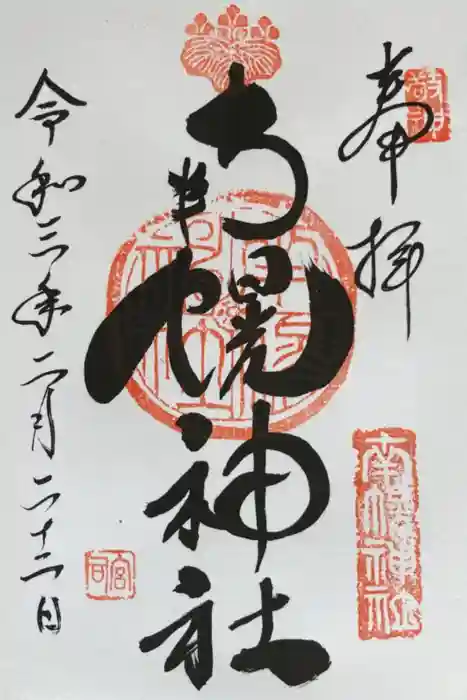 敬神
奉拝
南幌神社
南幌神社
令和三年二月二十二日
宮司